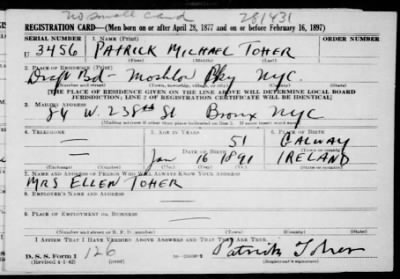 no small card 281431
REGISTRATION CARD—(Men born on or after April 28, 1877 and on or before February 16, 1897)
SERIAL NUMBER 1. NAME (Print) ORDER NUMBER
U 3456 PATRICK MICHAEL TOHER
(First) (Middle) (Last)
2. PLACE OF RESIDENCE (Print)
Draft Bd - Moshlo Pky NYC.
(Number and street) (Town, township, village, or city) (County) (State)
[THE PLACE OF RESIDENCE GIVEN ON THE LINE ABOVE WILL DETERMINE LOCAL BOARD
JURISDICTION; LINE 2 OF REGISTRATION CERTIFICATE WILL BE IDENTICAL]
3. MAILING ADDRESS
84 W 238th St Bronx NYC
[Mailing address if other than place indicated on line 2. If same insert word same]
4. TELEPHONE 5. AGE IN YEARS 6. PLACE OF BIRTH
51 GALWAY
DATE OF BIRTH (Town or county)
Jan 16 1891 IRELAND
(Exchange) (Number) (Mo.) (Day) (Yr.) (State or country)
7. NAME AND ADDRESS OF PERSON WHO WILL ALWAYS KNOW YOUR ADDRESS
MRS ELLEN TOHER
8. EMPLOYER'S NAME AND ADDRESS
9. PLACE OF EMPLOYMENT OR BUSINESS
(Number and street or R. F. D. number) (Town) (County) (State)
I AFFIRM THAT I HAVE VERIFIED ABOVE ANSWERS AND THAT THEY ARE TRUE.
D. S. S. Form 1 126 Patrick Toher
(Revised 4-1-42) (Registrant's signature)